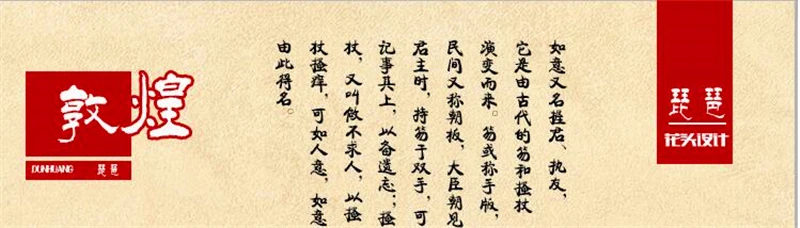 琵琶
花头设计
如意又名握君、执友,
它是由古代的笏和搔杖
演变而来。笏或称手版,
民间又称朝板,大臣朝见
君主时,持笏于双手,可
记事其上,以备遗忘;搔
杖,又叫做不求人,以搔
杖搔痒,可如人意,如意
由此得名。
敦煌
DUNHUANG 琵琶